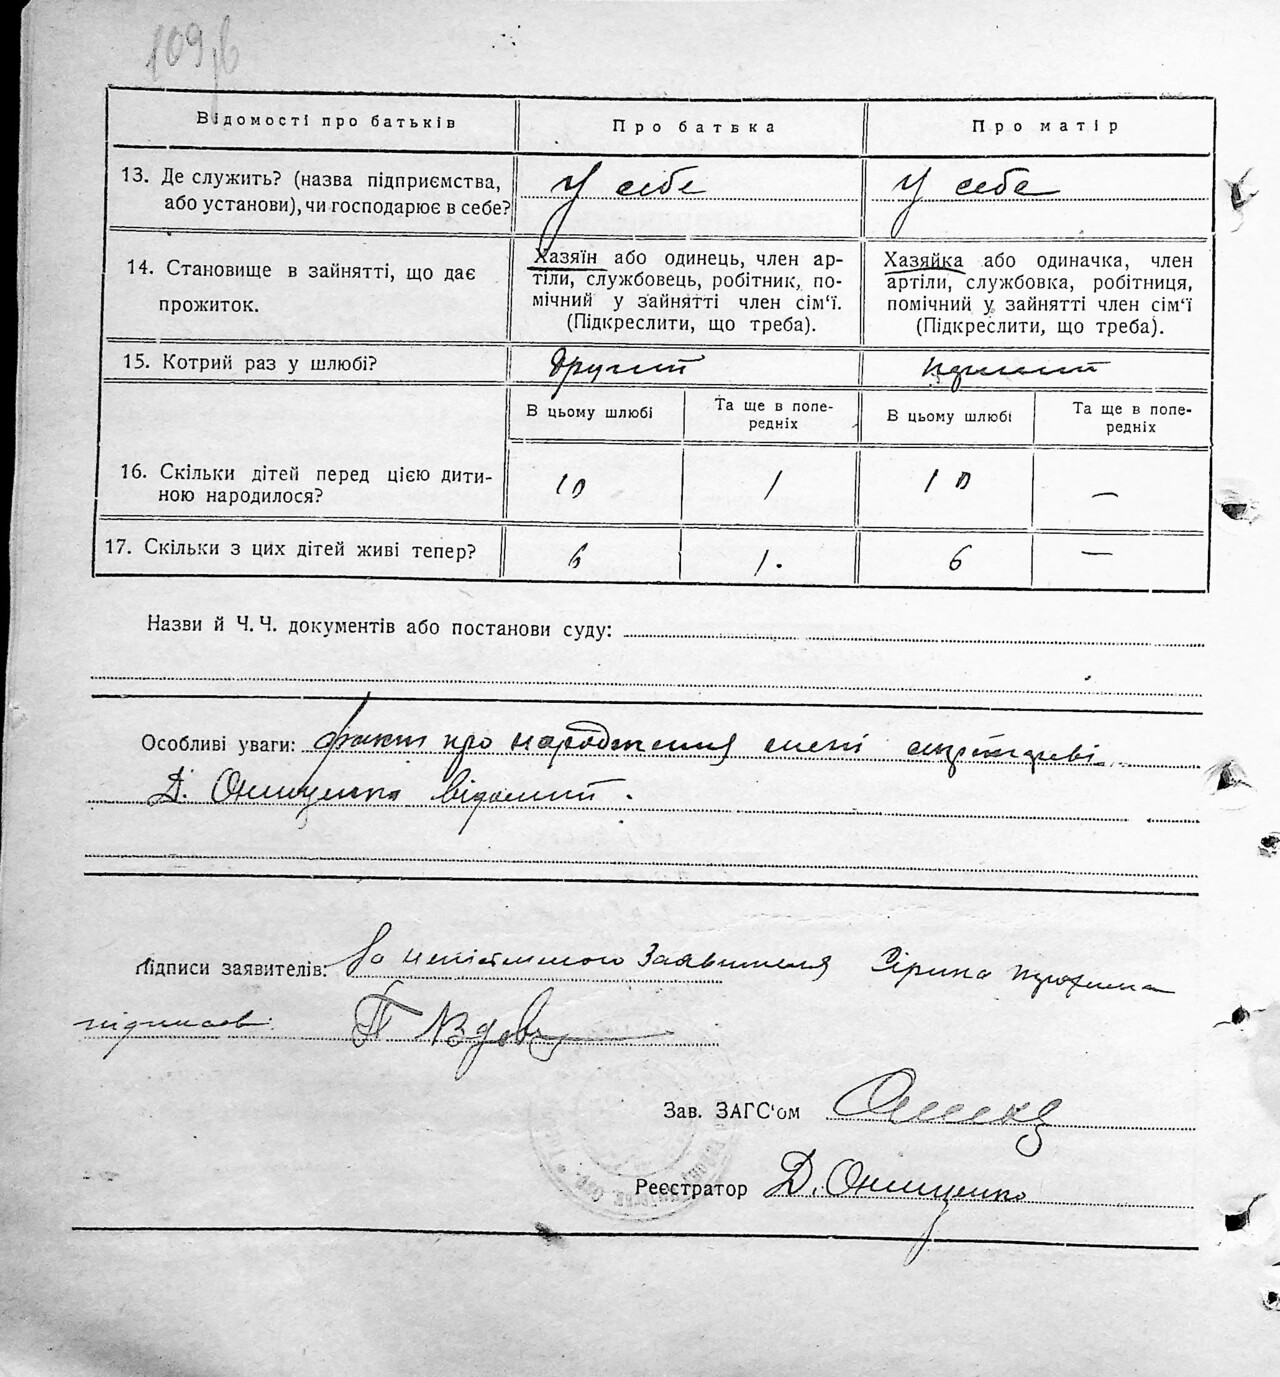 109
Відомості про батьків
Про батька
Про матір
13. Де служить? (назва підприємства,
або установи), чи господарює в себе?
У себе
У себе
14. Становище в зайнятті, що дає
прожиток.
Хазяїн або одинець, член ар-
тіли, службовець, робітник, по-
мічний у зайнятті член сім'ї.
(Підкреслити, що треба).
Хазяйка або одиначка, член
артіли, службовка, робітниця,
помічний у зайнятті член сім'ї
(Підкреслити, що треба).
15. Котрий раз у шлюбі?
другий
В цьому шлюбі
Та ще в попе-
редніх
В цьому шлюбі
Та ще в попе-
редніх
16. Скільки дітей перед цією дити-
ною народилося?
10
1
10
—
17. Скільки з цих дітей живі тепер?
6
1.
6
—
Назви й Ч. Ч. документів або постанови суду:
Особливі уваги: факт про народження мені секретареві
Д. Онищенко відомий.
Підписи заявителів: За неписьменого Заявителя
підписав:
Зав. ЗАГС'ом
Реєстратор Д. Онищенко